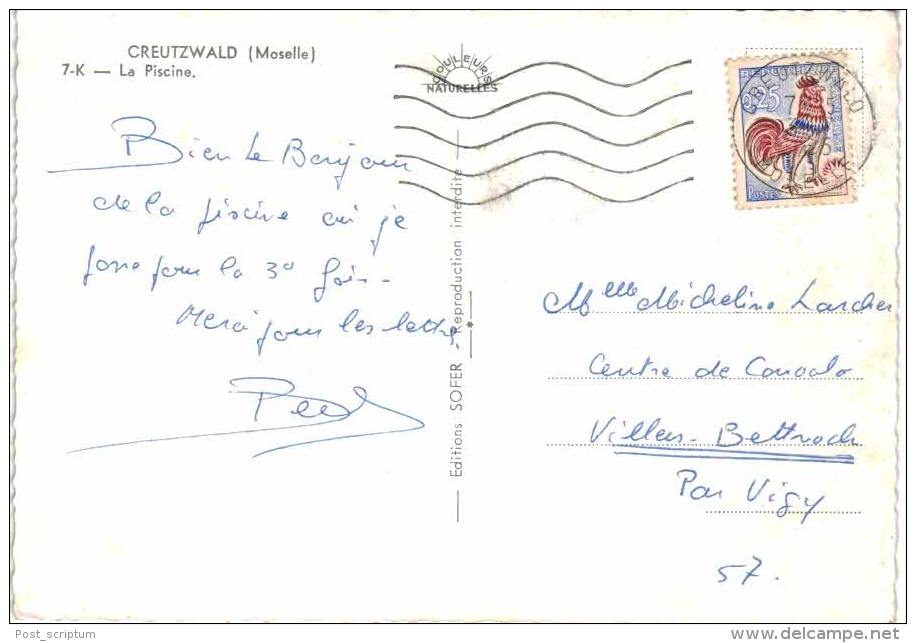 CREUTZWALD (Moselle)
7-K — La Piscine.
COULEURS
NATURELLES
0,25
POSTES
CREUTZWALD
MOSELLE
Bien le Bonjour
de la piscine où je
passe pour la 3° fois -
Merci pour les lettres
Editions SOFER - Reproduction interdite
Melle Micheline Larcher
Centre de
Villers-Bettnach
Par Vigy
57.
Post_scriptum
delcampe.net